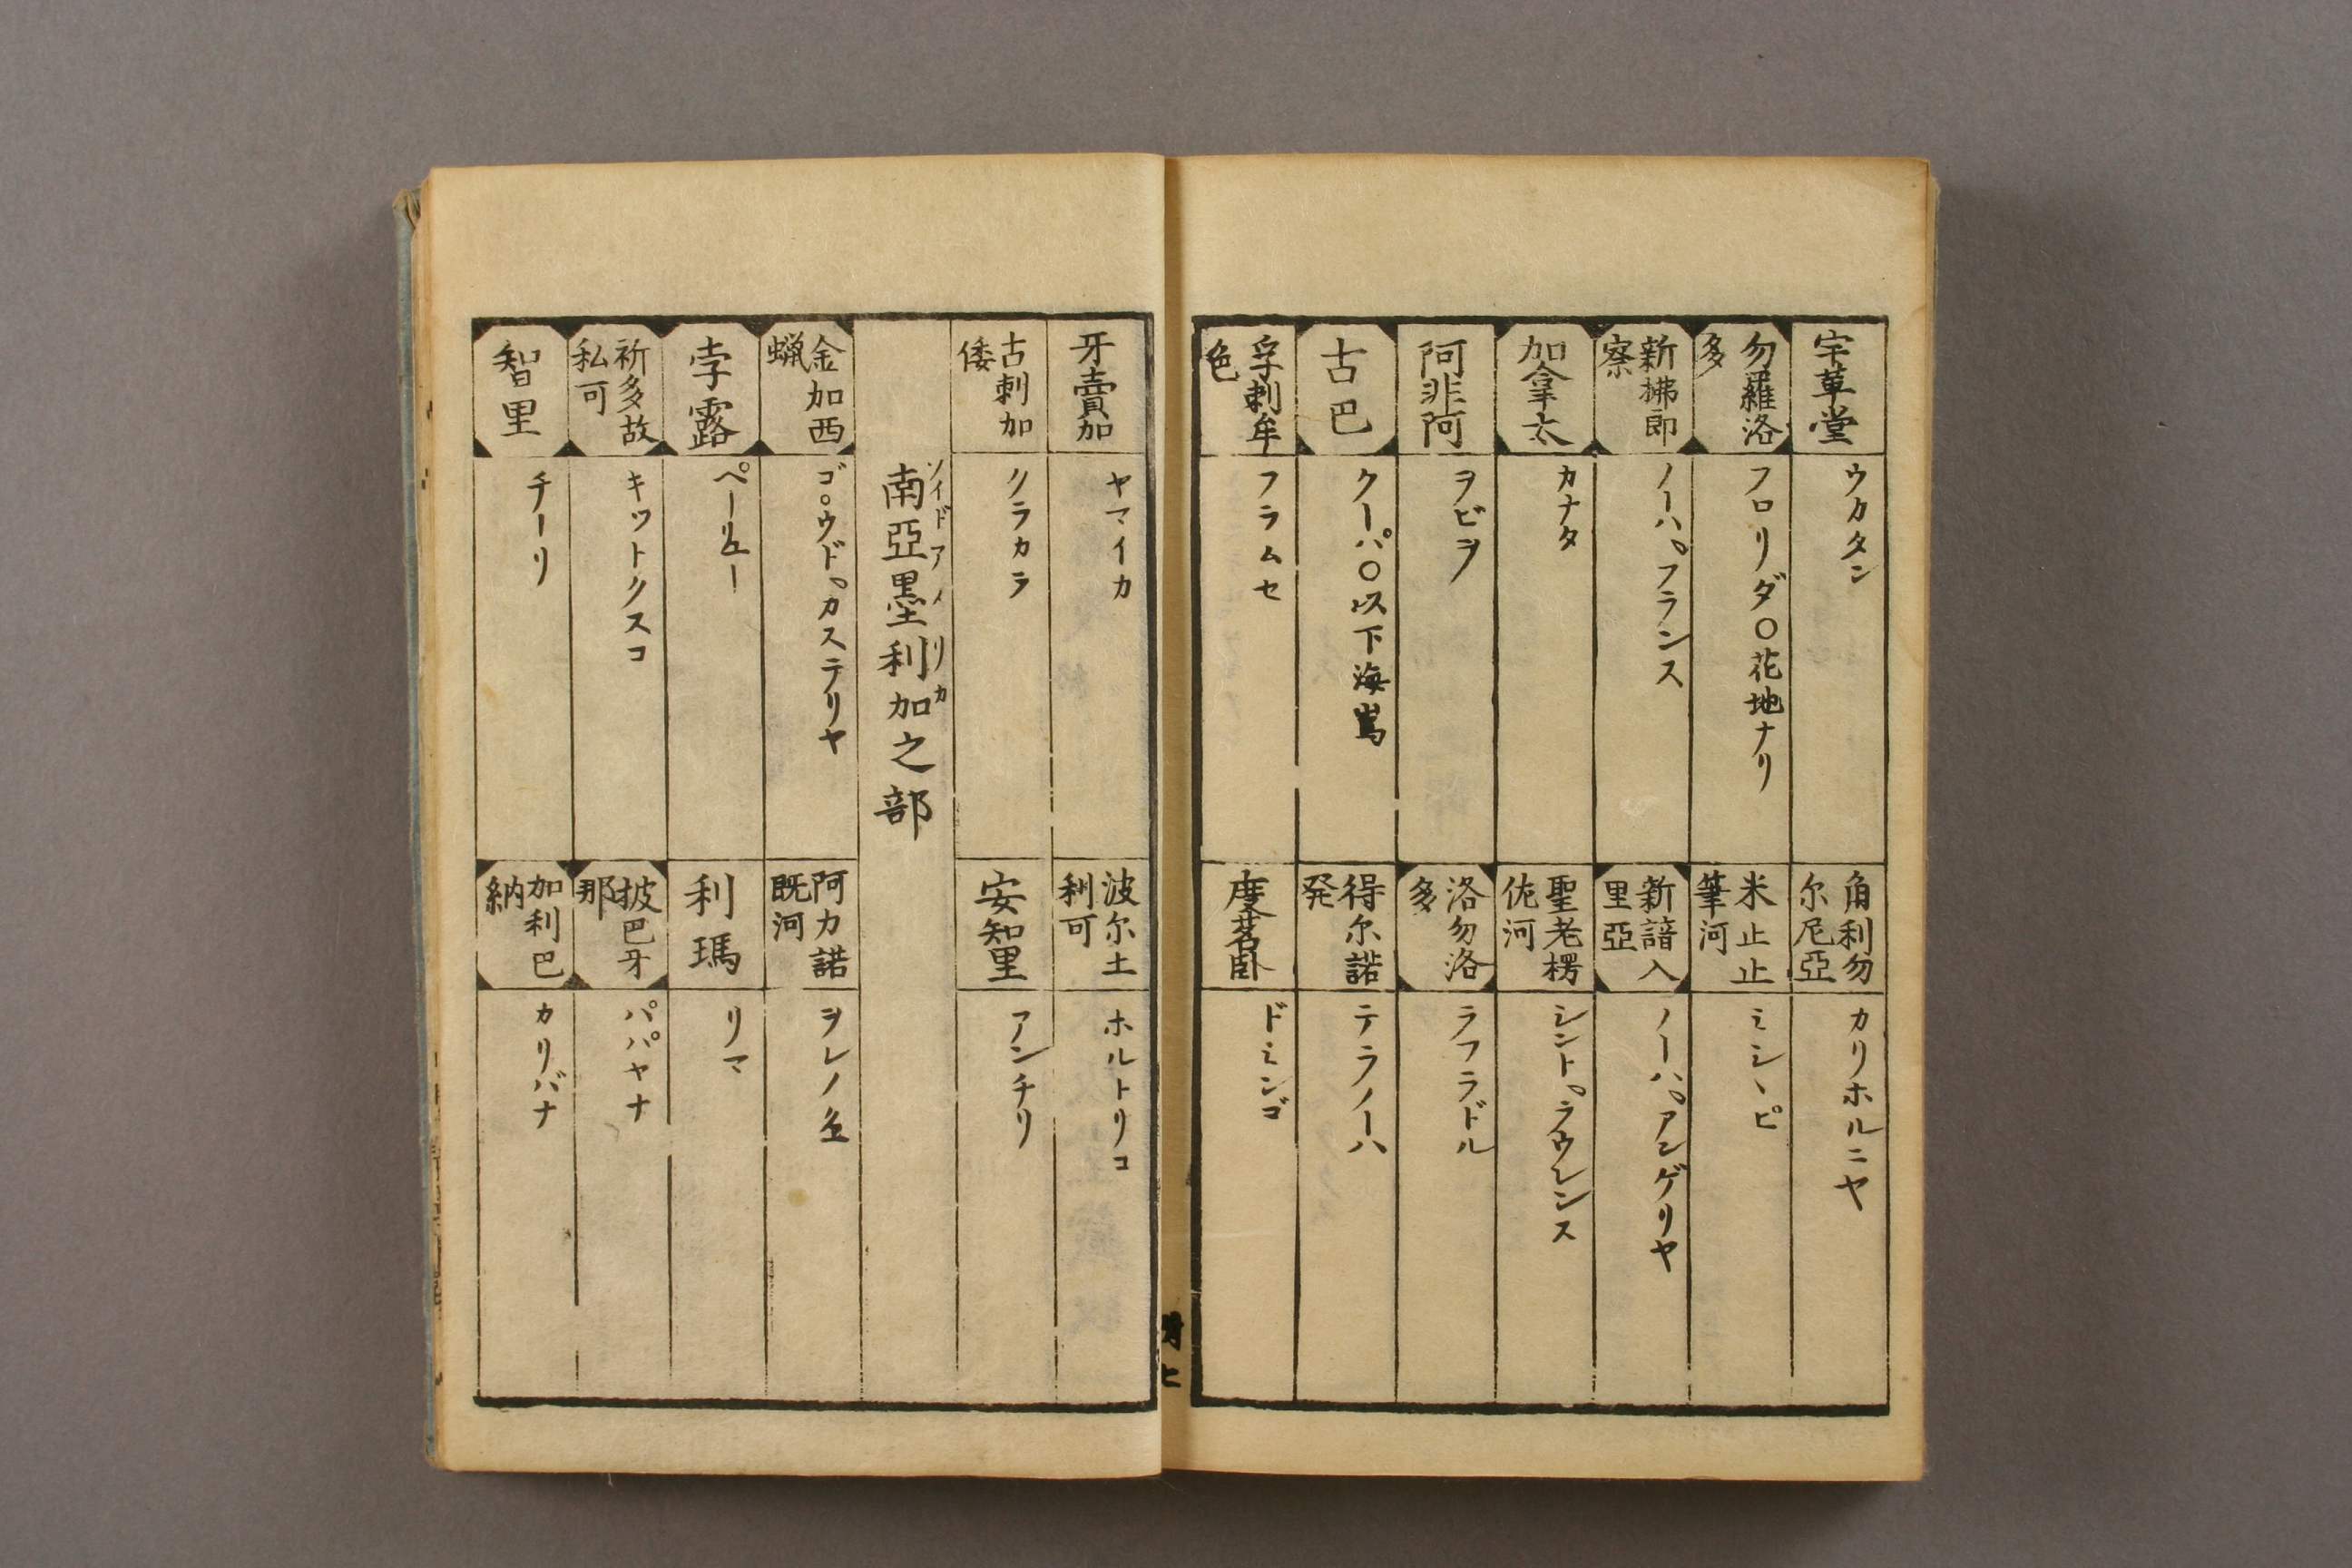 宇革堂 ウカタン
角利勿尔尼亞 カリホルニヤ
勿羅洛多 フロリダ〇花地ナリ
米止止筆河 ミシヽピ
新拂郎察 ノーハ。フランス
新諳入里亞 ノーハ。アンゲリヤ
加拿太 カナタ
聖老楞佐河 シント。ラウレンス
阿非阿 ヲビヲ
洛勿洛多 ラフラドル
古巴 クーパ〇以下海嶌
得尔諾発 テラノーハ
孚剌牟色 フラムセ
度茗臥 ドミンゴ
牙賣加 ヤマイカ
波尔土利可 ホルトリコ
古刺加倭 クラカラ
安知里 アンチリ
南亞墨利加之部 ソイドアメリカ
金加西蝋 ゴ。ウド。カステリヤ
阿力諾既河 ヲレノ
孛露 ペーリュー
利瑪 リマ
祈多故私可 キットクスコ
披巴牙那 パパヤナ
智里 チーリ
加利巴納 カリバナ
附七